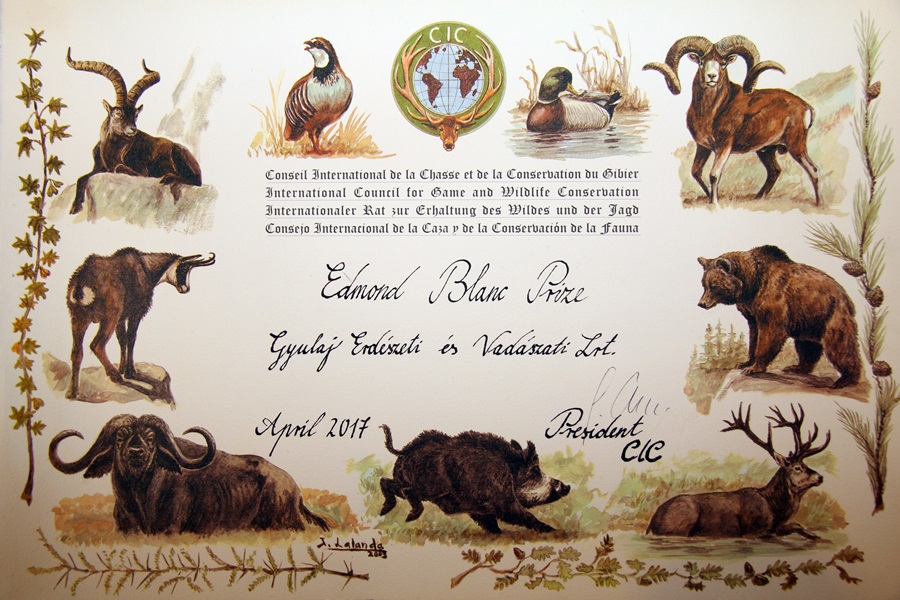 CIC
Conseil International de la Chasse et de la Conservation du Gibier
International Council for Game and Wildlife Conservation
Internationaler Rat zur Erhaltung des Wildes und der Jagd
Consejo Internacional de la Caza y de la Conservación de la Fauna
Edmond Blanc Prize
Gyulaj Erdészeti és Vadászati Zrt.
April 2017
President
CIC
J. Lalanda
2003